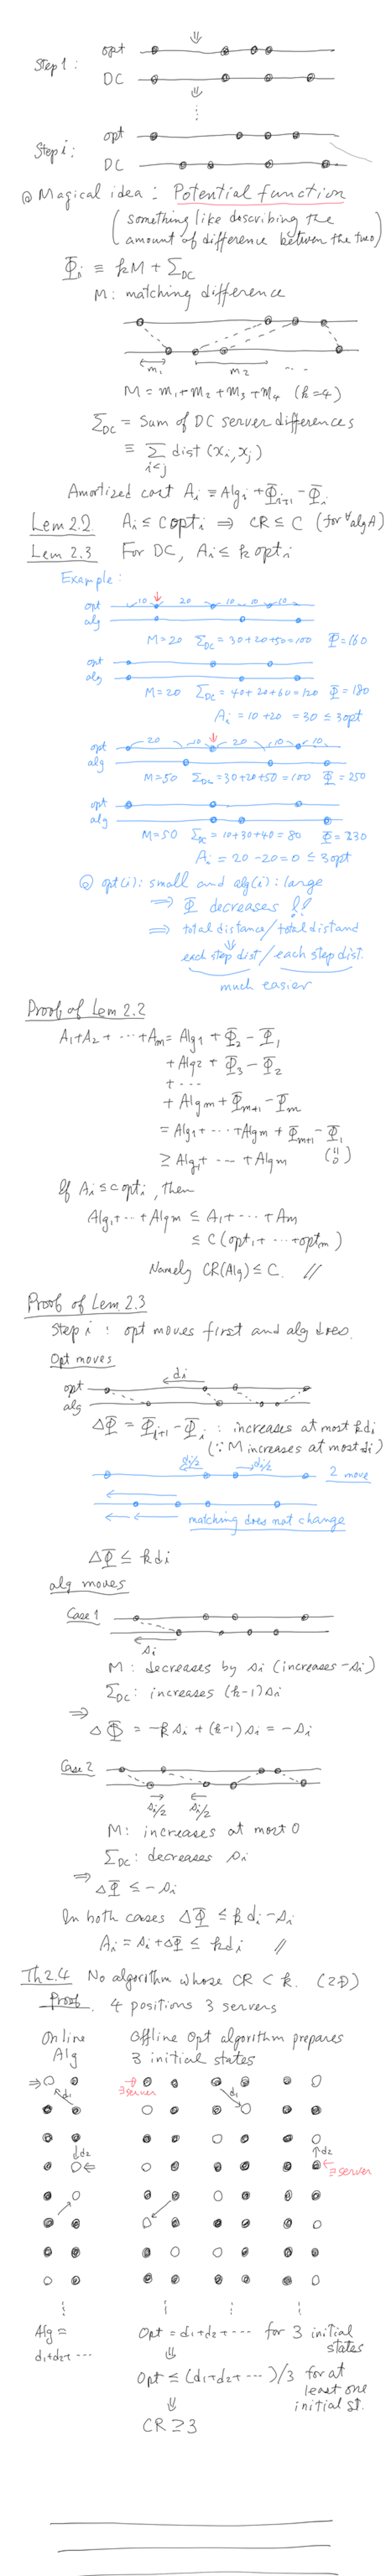 Step 1: opt
DC
Step i: opt
DC
◎ Magical idea: Potential function
(something like describing the
amount of difference between the two)
Φi ≡ kM + ΣDC
M: matching difference
m1 m2 ...
M = m1+m2+m3+m4 (k=4)
ΣDC = Sum of DC server differences
≡ Σ i<j dist(xi, xj)
Amortized cost Ai ≡ Algi + Φi+1 - Φi
Lem 2.2 Ai ≤ C opti ⇒ CR ≤ C (for ∀alg A)
Lem 2.3 For DC, Ai ≤ k opti
Example:
opt 10 20 10 10 10
alg
M=20 ΣDC = 30+20+50=100 Φ=160
opt
alg
M=20 ΣDC = 40+20+60=120 Φ=180
Ai = 10+20 = 30 ≤ 3opt
opt 20 10 20 10 10
alg
M=50 ΣDC=30+20+50=100 Φ=250
opt
alg
M=50 ΣDC=10+30+40=80 Φ=230
Ai = 20-20=0 ≤ 3opt
◎ opt(i): small and alg(i): large
⇒ Φ decreases !!
⇒ total distance/total distand
each step dist/each step dist.
much easier
Proof of Lem 2.2
A1+A2+ ... +Am = Alg1 + Φ2 - Φ1
+ Alg2 + Φ3 - Φ2
+ ...
+ Algm + Φm+1 - Φm
= Alg1+ ... +Algm + Φm+1 - Φ1
≥ Alg1+ ... + Algm (0)
If Ai ≤ c opti, then
Alg1+ ... + Algm ≤ A1+ ... + Am
≤ C(opt1+ ... +optm)
Namely CR(Alg) ≤ C. //
Proof of Lem 2.3
Step i: opt moves first and alg does.
Opt moves
di
opt
alg
ΔΦ = Φi+1 - Φi: increases at most kdi
(∵ M increases at most di)
di/2 di/2
2 move
matching does not change
ΔΦ ≤ kdi
alg moves
Case 1
si
M: decreases by si (increases -si)
ΣDC: increases (k-1)si
⇒
ΔΦ = -ksi + (k-1)si = -si
Case 2
si/2 si/2
M: increases at most 0
ΣDC: decreases si
⇒
ΔΦ ≤ -si
In both cases ΔΦ ≤ kdi - si
Ai = si + ΔΦ ≤ kdi //
Th 2.4 No algorithm whose CR < k. (2D)
Proof. 4 positions 3 servers
Online Alg
Offline Opt algorithm prepares
3 initial states
∃server
d1
d1
d2
d2
∃server
Alg =
d1+d2+ ...
Opt = d1+d2+ ... for 3 initial states
⇓
Opt ≤ (d1+d2+ ...)/3 for at least one initial st.
⇓
CR ≥ 3